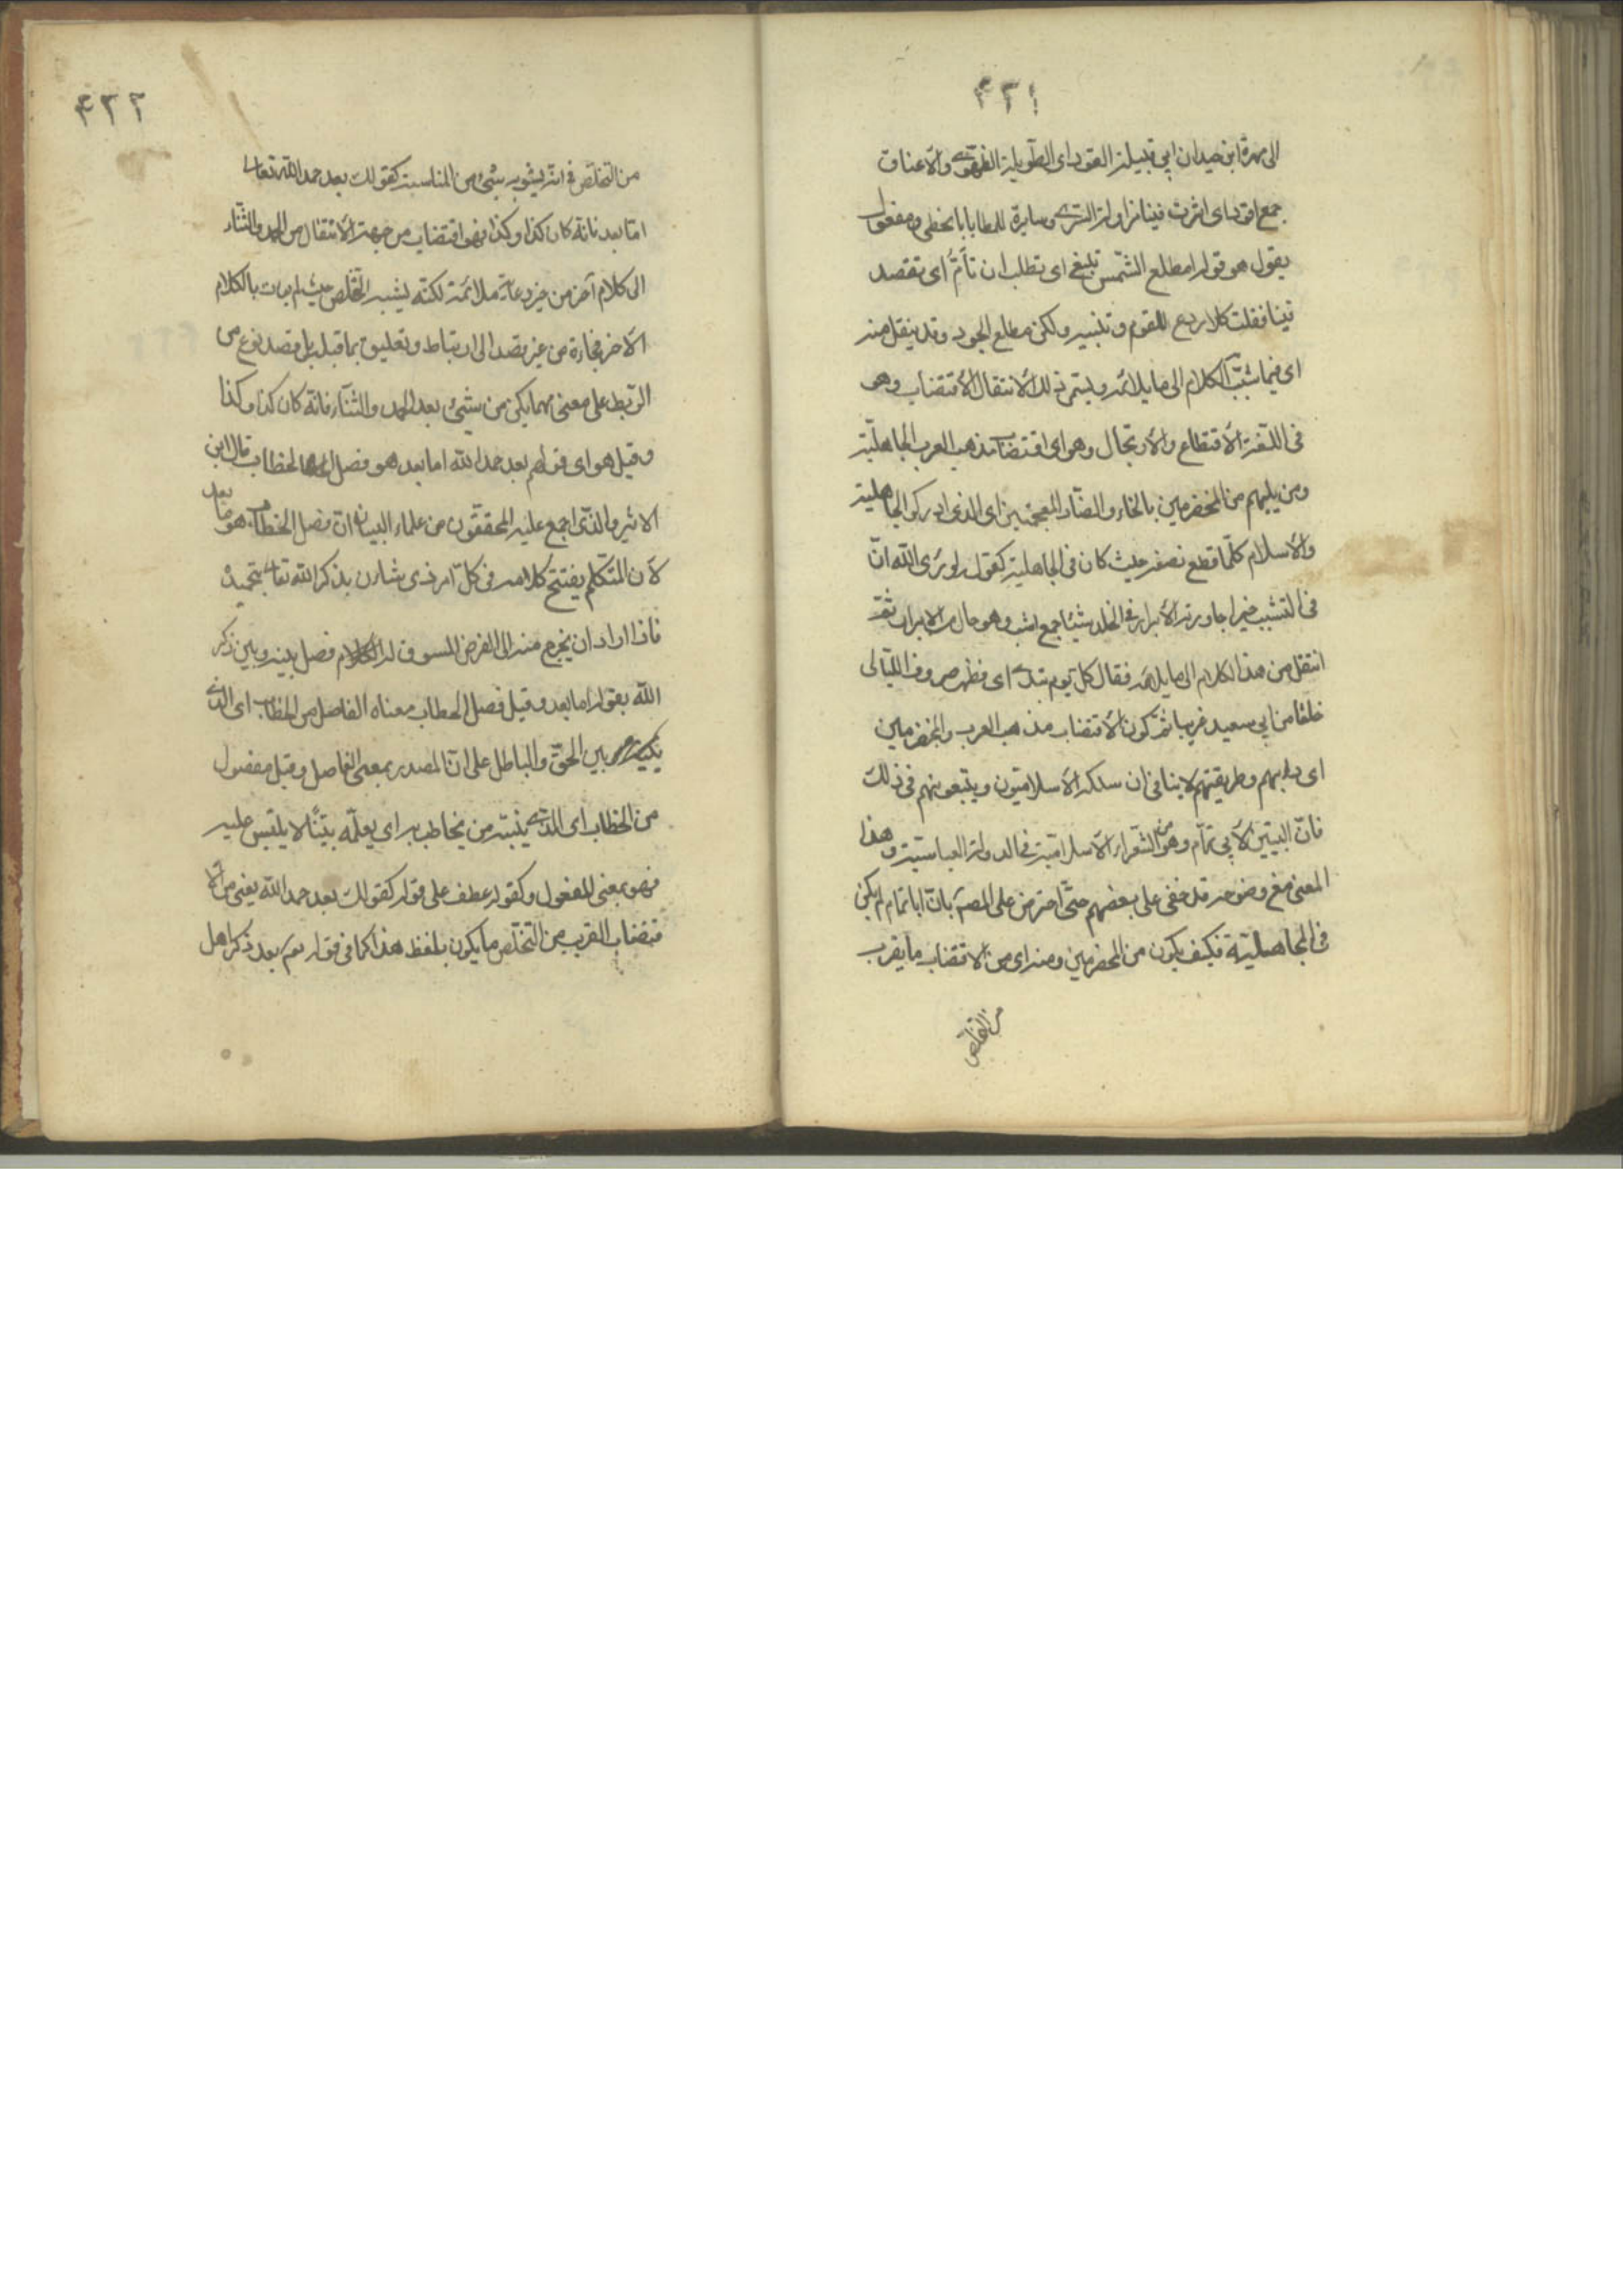 ٤٣١
الى مهرة ابن حيدان ابي قبيلة القود اى الطويلة الظهور والاعناق
جمع اقود اى اثرت فينا مزاولة السرى ومسايرة المطايا بالخطى ومفعول
يقول هو قوله امطلع الشمس تبغى اى تطلب ان تأمّ اى تقصد
بنا فقلت كلا ردع للقوم وتنبيه ولكن مطلع الجود وقد ينقل منه
اى فيما شبّب الكلام الى ما يلائمه ويسمى ذلك الانتقال الاقتضاب وهو
فى اللغة الاقتطاع والارتجال وهو اى اقتضاب مذهب العرب الجاهلية
ومن يليهم من المخضرمين بالخاء والضاد المعجمتين اى الذى ادركوا الجاهلية
والاسلام كلّما قطع نصفه حيث كان فى الجاهلية كقوله لو يرى الله انّ
فى الشيب خيرا جاورته الابرار فى الخلد شيبا جمع اشيب وهو حال من الابرار ثمّ
انتقل من هذا الكلام الى ما يلائمه فقال كل يوم تبدى اى تظهر صروف الليالى
خلقا من ابي سعيد غريبا ثمّ كون الاقتضاب مذهب العرب والمخضرمين
اى دابهم وطريقتهم لا ينافى ان سلكه الاسلاميّون ويتبعونهم فى ذلك
فانّ البيتين لأبي تمّام وهو من الشعراء الاسلامية فى الدولة العباسية وهذا
المعنى مع وضوحه قد خفى على بعضهم حتّى اعترض على المصـ بانّ ابا تمام لم يكن
فى الجاهليّة فكيف يكون من المخضرمين ومنه اى من الاقتضاب ما يقرب
من التخلص
٤٣٢
من التخلّص فى انّه يشوبه شئ من المناسبة كقولك بعد حمد الله تعالى
امّا بعد فانّه كان كذا وكذا فهو اقتضاب من جهة الانتقال من الحمد والثّناء
الى كلام آخر من غير رعاية ملائمة لكنّه يشبه التخلّص حيث لم يات بالكلام
الاخر فجاءة من غير قصد الى ارتباط وتعليق بما قبله بل قصد نوع من
الربط على معنى مهما يكن من شئ بعد الحمد والثّناء فانّه كان كذا وكذا
وقيل هو اى قولهم بعد حمد الله اما بعد هو فصل الخطاب قال ابن
الاثير والّذى اجمع عليه المحققون من علماء البيان انّ فصل الخطاب هو اما بعد
لأن المتكلّم يفتتح كلامه فى كلّ امر ذى شان بذكر الله تعالى بتحميده
فاذا اراد ان يخرج منه الى الغرض المسوق له الكلام فصل بينه وبين ذكر
الله بقوله اما بعد وقيل فصل الخطاب معناه الفاصل من الخطاب اى الذى
بين الحقّ والباطل على انّ المصدر بمعنى الفاصل وقيل مفصول
من الخطاب اى الذى يتبيّنه من يخاطب به اى يعلمه بيّنا لا يلتبس عليه
فهو بمعنى المفعول وكقوله عطف على قوله كقولك بعد حمد الله يعنى من الا
قتضاب القريب من التخلّص ما يكون بلفظ هذا كما فى قوله تعـ بعد ذكر اهل